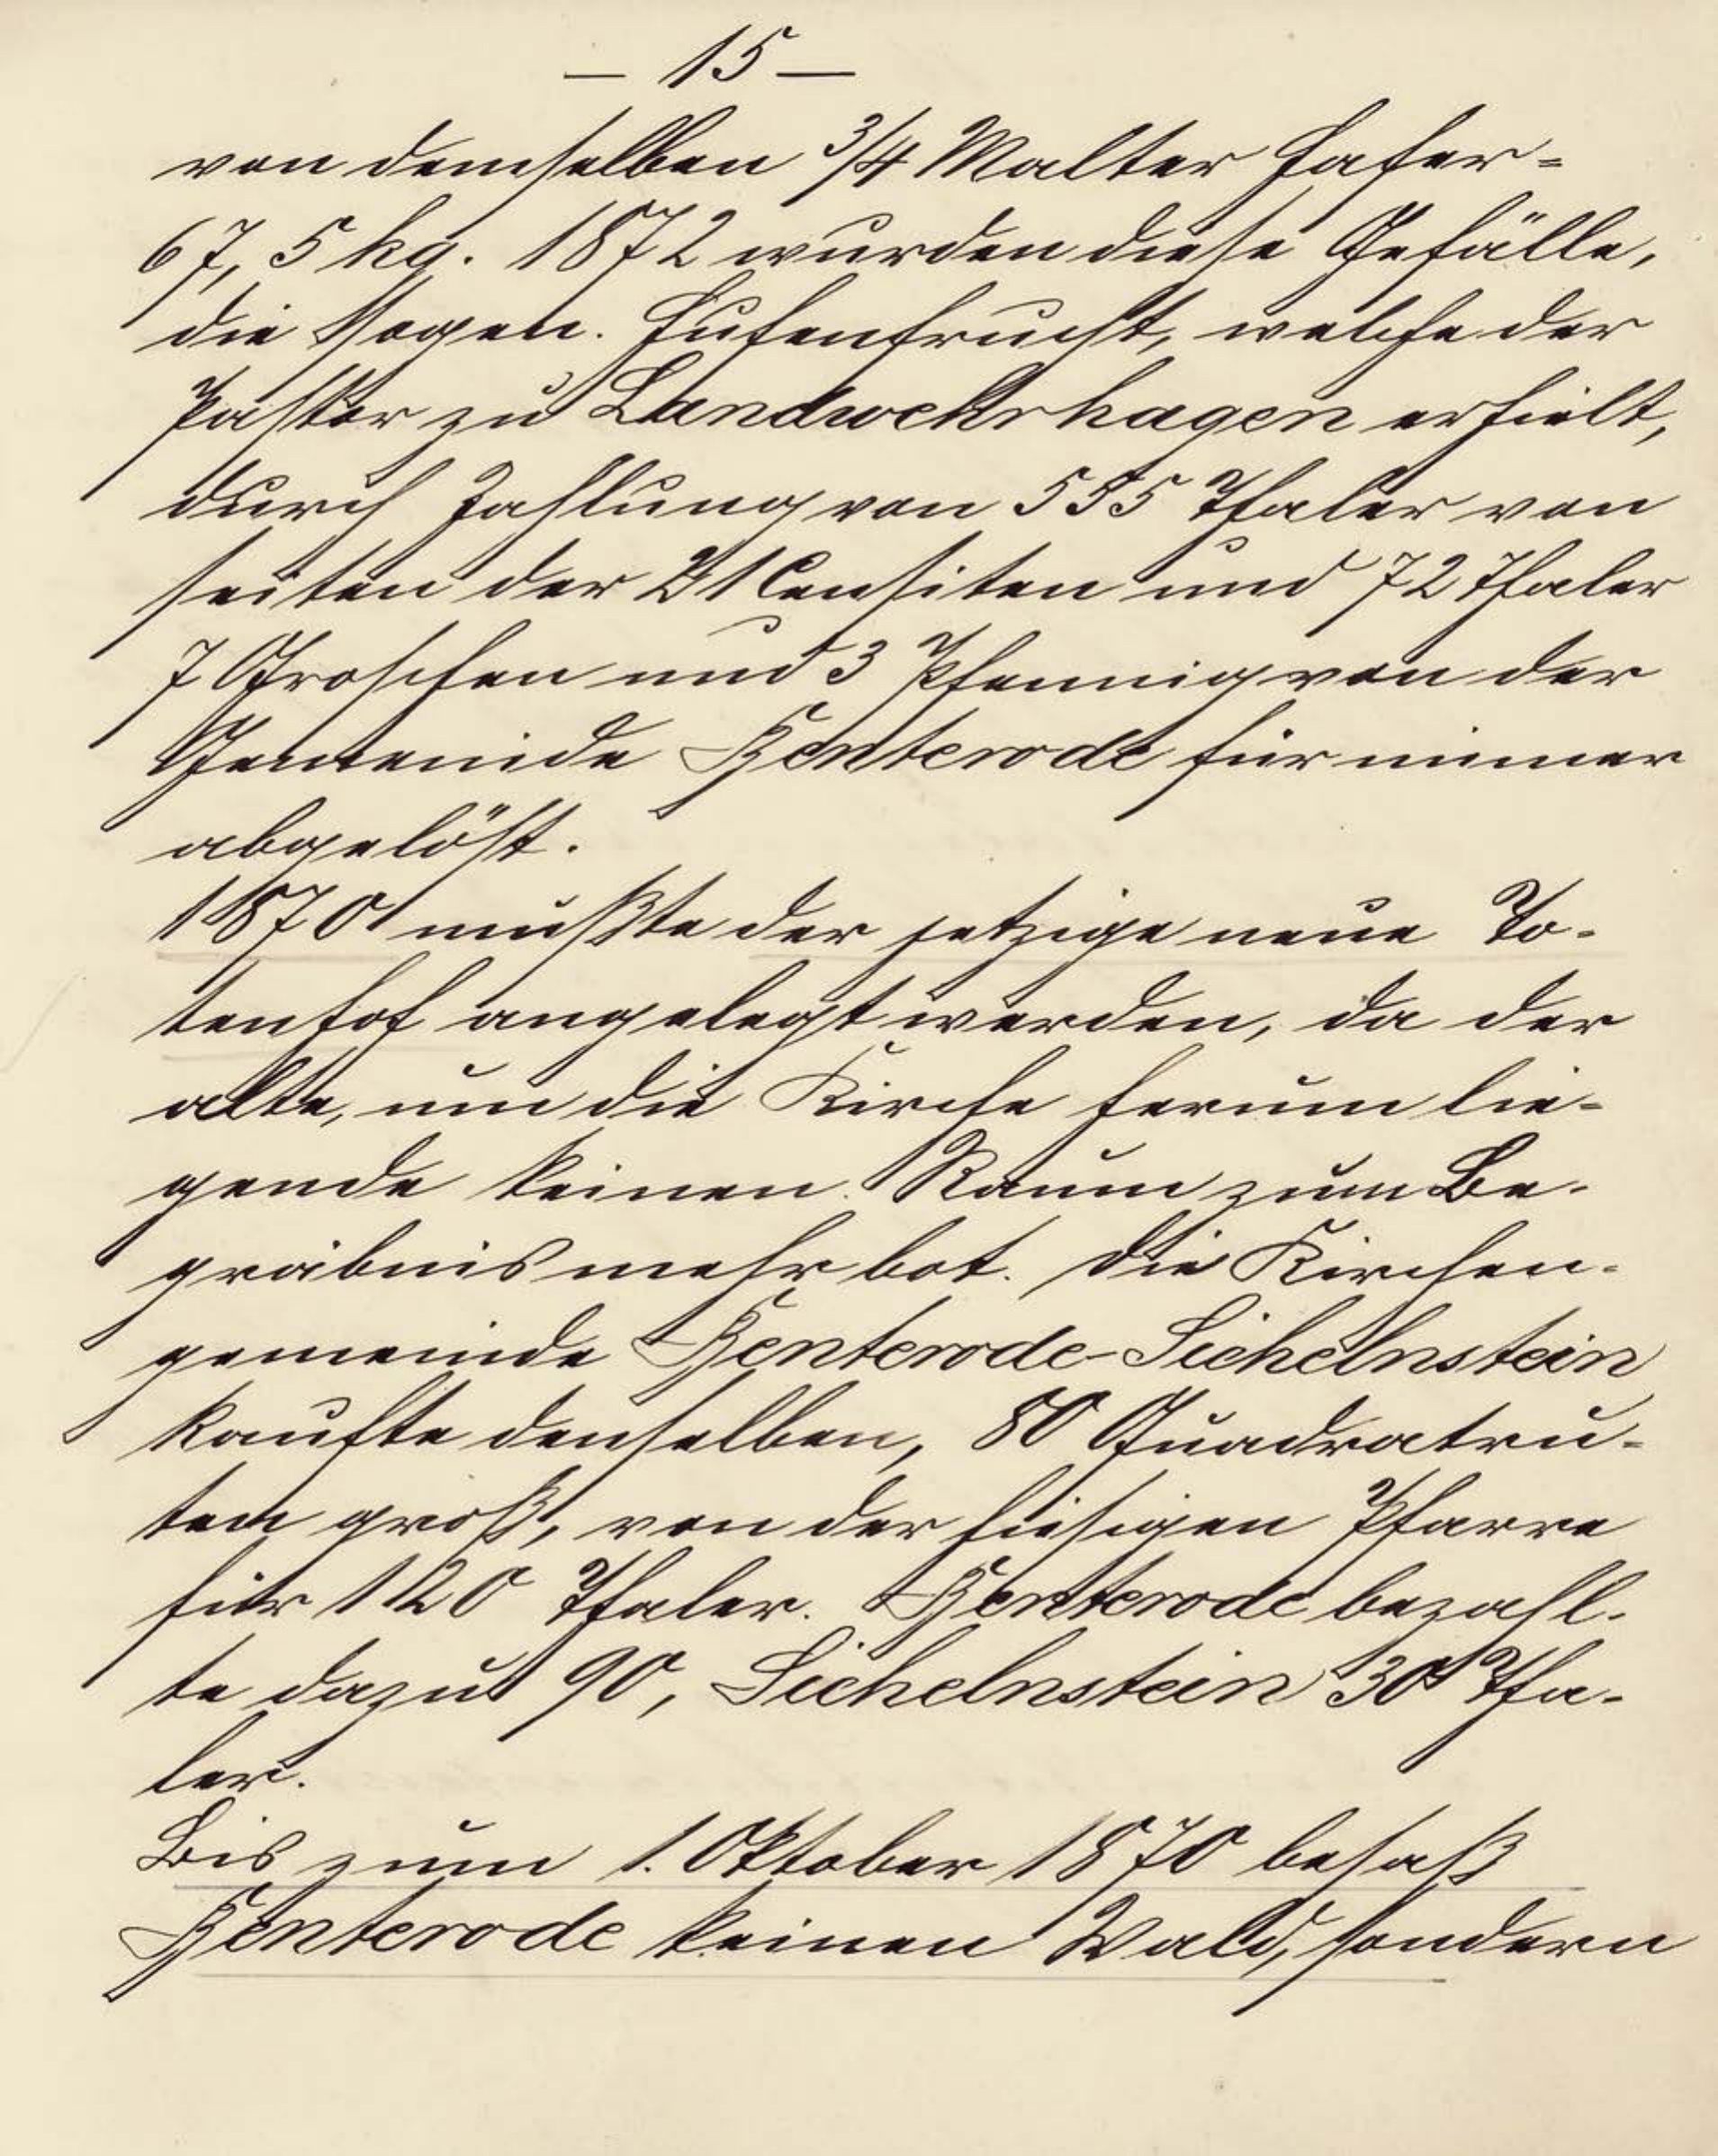 — 15 —
von demselben 3/4 Malter Hafer =
67,5 kg. 1872 wurden diese Gefälle,
die sogen. Hufenfrucht, welche der
Pastor zu Landwehrhagen erhielt,
durch Zahlung von 555 Thaler von
seiten der 21 Censiten und 72 Thaler
7 Groschen und 3 Pfennig von der
Gemeinde Benterode für immer
abgelöst.
1870 mußte der jetzige neue To-
tenhof angelegt werden, da der
alte, um die Kirche herum lie-
gende keinen Raum zum Be-
gräbnis mehr bot. Die Kirchen-
gemeinde Benterode-Sichelnstein
kaufte denselben, 80 Quadratru-
ten groß, von der hiesigen Pfarre
für 120 Thaler. Benterode bezahl-
te dazu 90, Sichelnstein 30 Tha-
ler.
Bis zum 1. Oktober 1870 besaß
Benterode keinen Wald, sondern